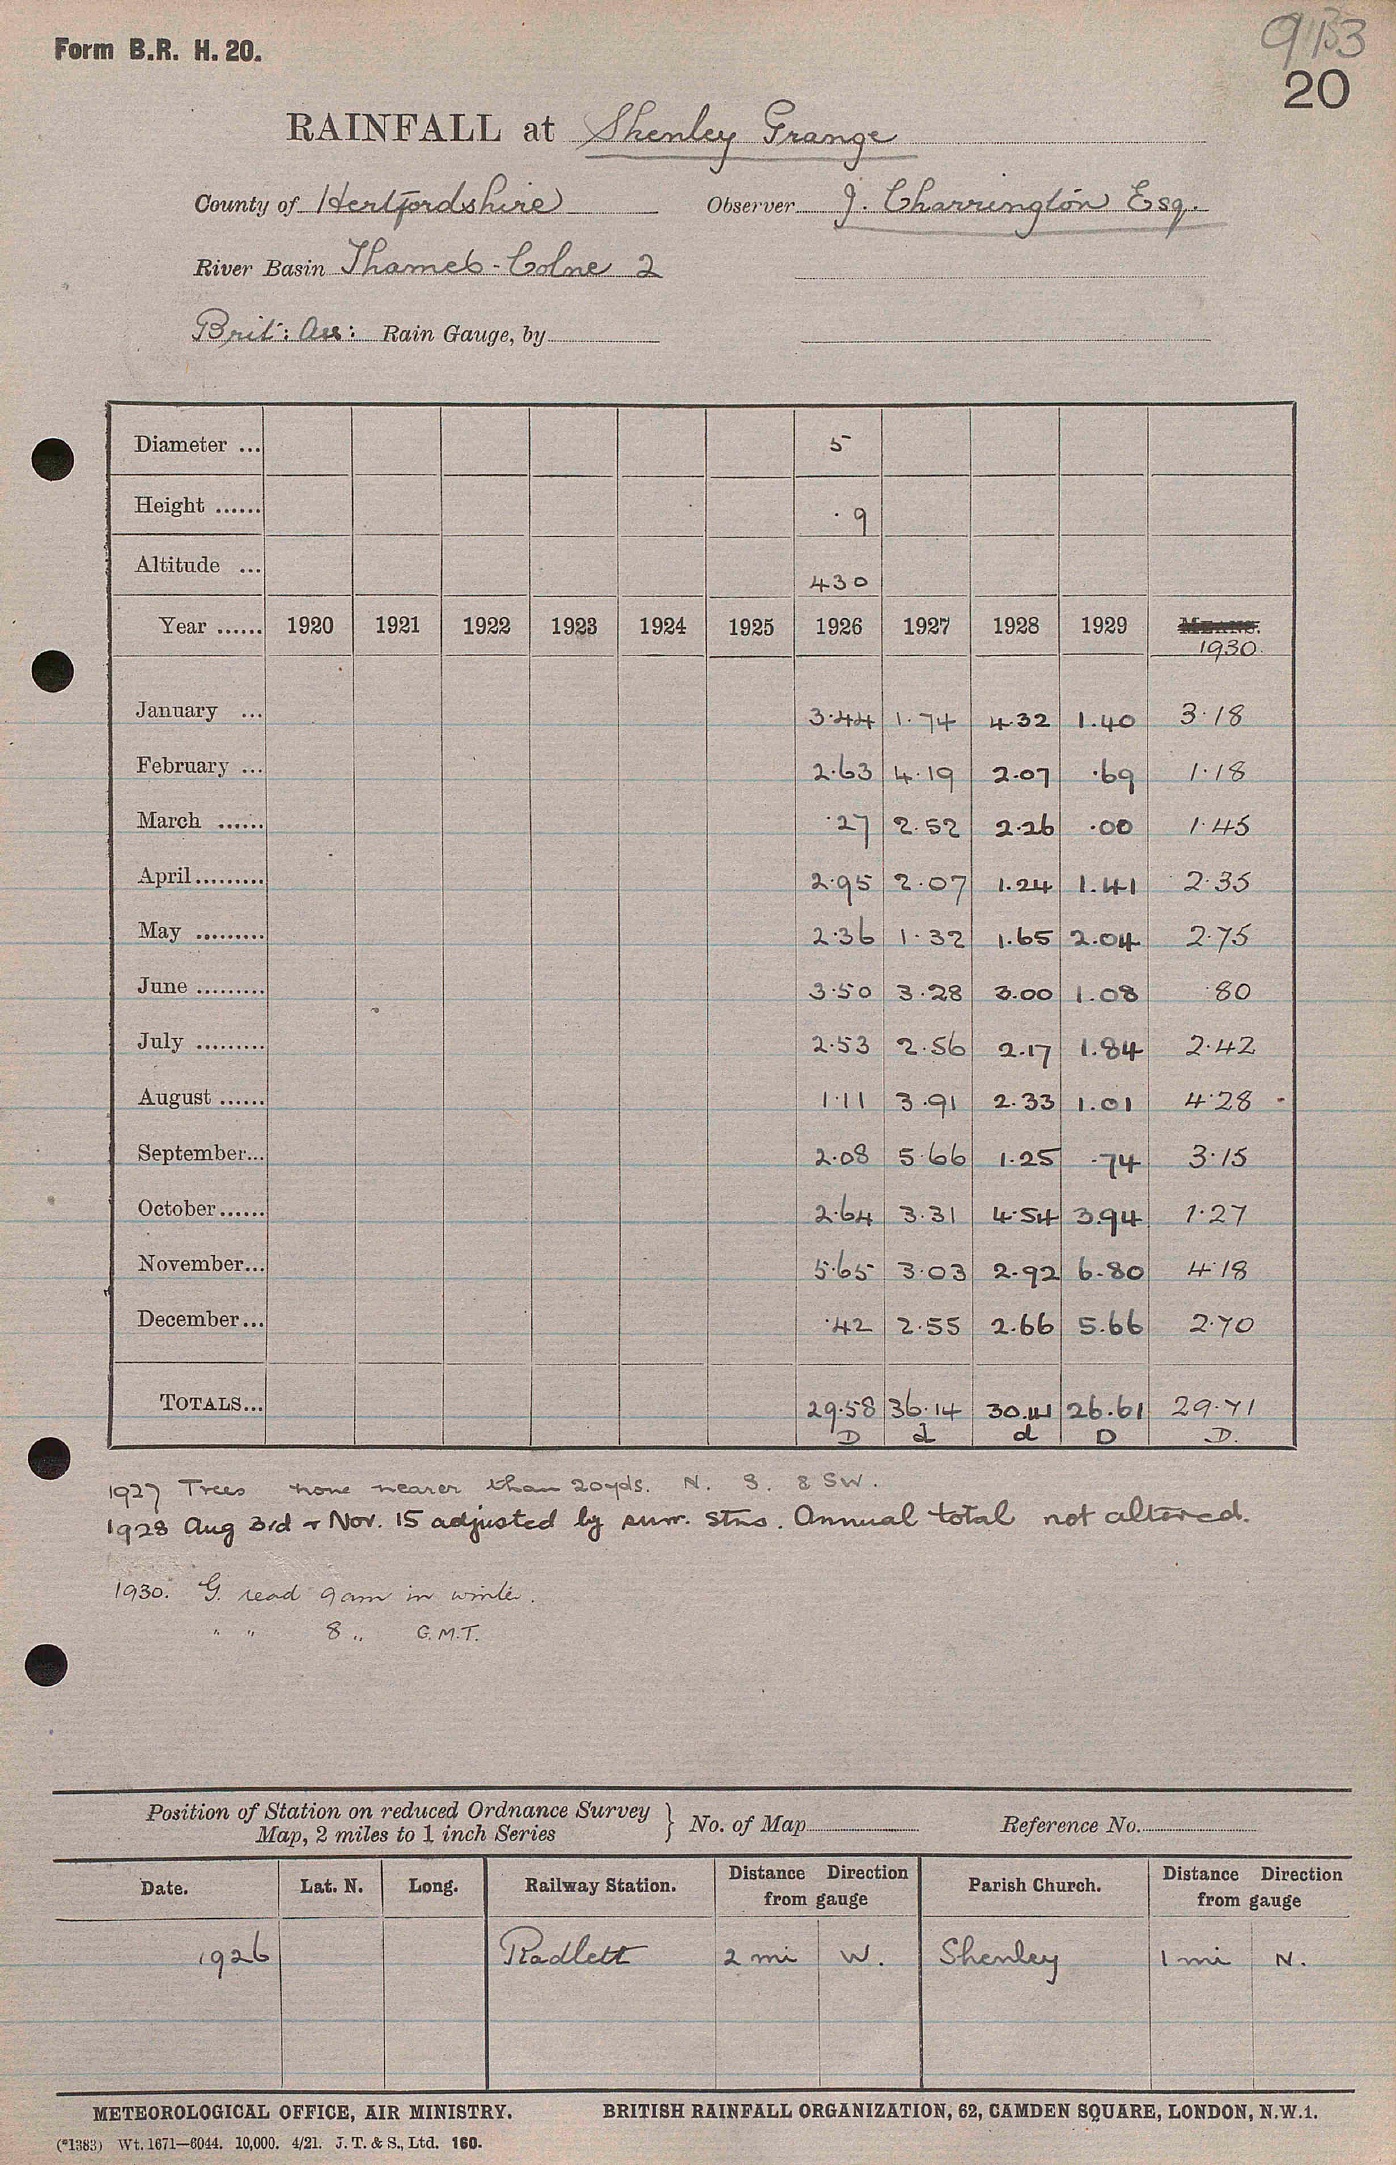 Form B.R. H. 20.
9133
20
RAINFALL at Shenley Grange
County of Hertfordshire Observer J. Charrington Esq.
River Basin Thames - Colne 2
Brit: Ass: Rain Gauge, by
Diameter ... 5
Height ...... .9
Altitude ... 430
Year ...... 1920 1921 1922 1923 1924 1925 1926 1927 1928 1929 MEANS.
1930.
January ... 3.44 1.74 4.32 1.40 3.18
February ... 2.63 4.19 2.07 .69 1.18
March ...... .27 2.52 2.26 .00 1.45
April......... 2.95 2.07 1.24 1.41 2.35
May ......... 2.36 1.32 1.65 2.04 2.75
June ......... 3.50 3.28 3.00 1.08 .80
July ......... 2.53 2.56 2.17 1.84 2.42
August ...... 1.11 3.91 2.33 1.01 4.28
September... 2.08 5.66 1.25 .74 3.15
October...... 2.64 3.31 4.54 3.94 1.27
November... 5.65 3.03 2.92 6.80 4.18
December... .42 2.55 2.66 5.66 2.70
TOTALS... 29.58 36.14 30.41 26.61 29.71
D d d D D.
1927 Trees none nearer than 20yds. N. S. & SW.
1928 Aug 3rd + Nov. 15 adjusted by surr. stns. Annual total not altered.
1930. G. read 9am in winter.
" " 8 " G.M.T.
Position of Station on reduced Ordnance Survey
Map, 2 miles to 1 inch Series } No. of Map Reference No.
Date. Lat. N. Long. Railway Station. Distance Direction from gauge Parish Church. Distance Direction from gauge
1926 Radlett 2 mi W. Shenley 1 mi N.
METEOROLOGICAL OFFICE, AIR MINISTRY. BRITISH RAINFALL ORGANIZATION, 62, CAMDEN SQUARE, LONDON, N.W.1.
(*1383) Wt. 1671—6044. 10,000. 4/21. J. T. & S., Ltd. 160.